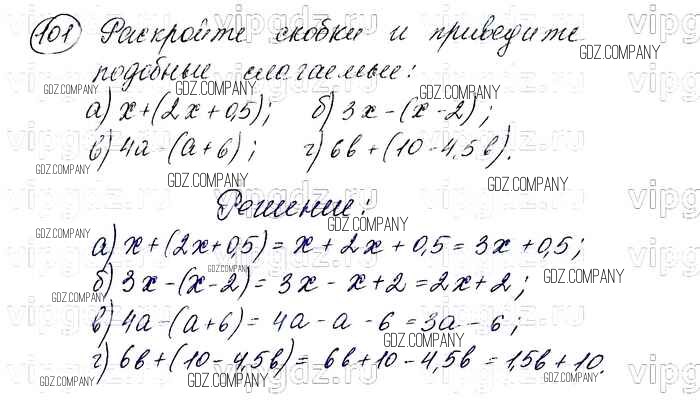 101 Раскройте скобки и приведите
подобные слагаемые:
а) x+(2x+0,5); б) 3x-(x-2);
в) 4a-(a+6); г) 6b+(10-4,5b).
Решение:
а) x+(2x+0,5)=x+2x+0,5=3x+0,5;
б) 3x-(x-2)=3x-x+2=2x+2;
в) 4a-(a+6)=4a-a-6=3a-6;
г) 6b+(10-4,5b)=6b+10-4,5b=1,5b+10.
GDZ.COMPANY
vipgdz.ru